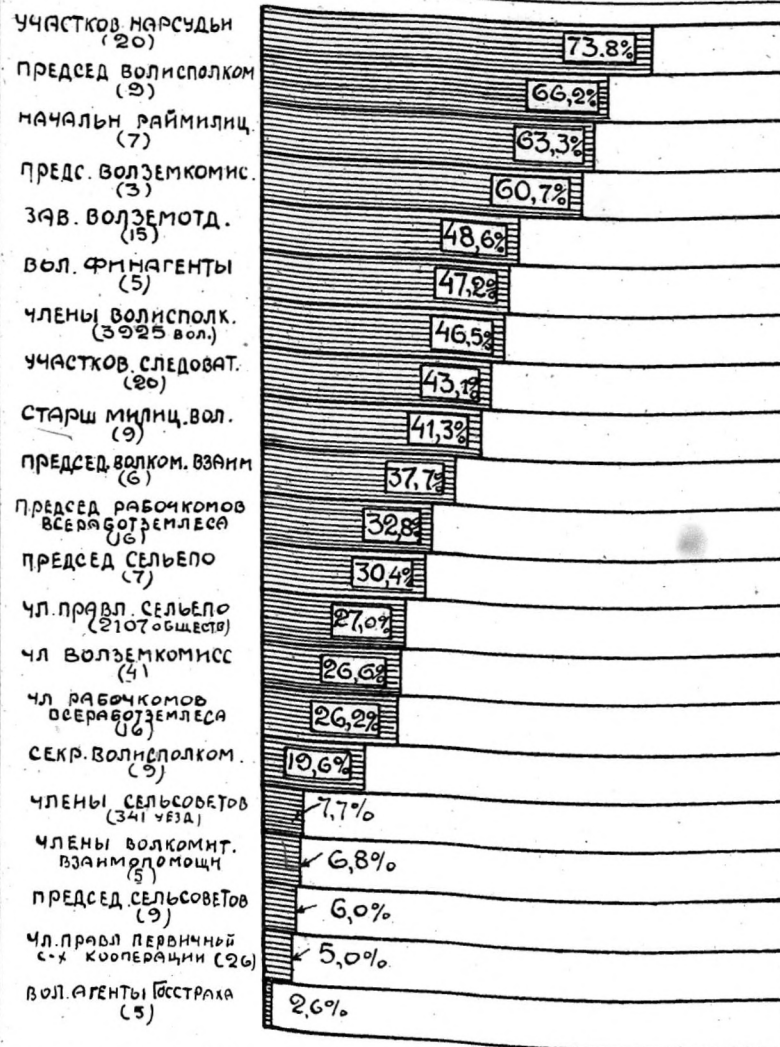 УЧАСТКОВ НАРСУДЬИ
(20)
73.8%
ПРЕДСЕД ВОЛИСПОЛКОМ
(9)
66,2%
НАЧАЛЬН РАЙМИЛИЦ.
(7)
63,3%
ПРЕДС. ВОЛЗЕМКОМИС.
(3)
60,7%
ЗАВ. ВОЛЗЕМОТД.
(15)
48,6%
ВОЛ. ФИНАГЕНТЫ
(5)
47,2%
ЧЛЕНЫ ВОЛИСПОЛК.
(3925 ВОЛ.)
46,5%
УЧАСТКОВ. СЛЕДОВАТ.
(20)
43,1%
СТАРШ МИЛИЦ. ВОЛ.
(9)
41,3%
ПРЕДСЕД. ВОЛКОМ. ВЗАИМ
(6)
37,7%
ПРЕДСЕД РАБОЧКОМОВ
ВСЕРАБОТЗЕМЛЕСА
(16)
32,8%
ПРЕДСЕД СЕЛЬЕПО
(7)
30,4%
ЧЛ. ПРАВЛ. СЕЛЬЕПО
(2107 ОБЩЕСТВ)
27,0%
ЧЛ ВОЛЗЕМКОМИСС
(4)
26,6%
ЧЛ РАБОЧКОМОВ
ВСЕРАБОТЗЕМЛЕСА
(16)
26,2%
СЕКР. ВОЛИСПОЛКОМ.
(9)
19,6%
ЧЛЕНЫ СЕЛЬСОВЕТОВ
(341 УЕЗД)
7,7%
ЧЛЕНЫ ВОЛКОМИТ.
ВЗАИМОПОМОЩИ
(5)
6,8%
ПРЕДСЕД. СЕЛЬСОВЕТОВ
(9)
6,0%
ЧЛ. ПРАВЛ ПЕРВИЧНЫЙ
С-Х КООПЕРАЦИИ (26)
5,0%
ВОЛ. АГЕНТЫ ГОССТРАХА
(5)
2,6%